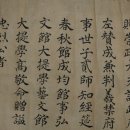 贈崇政大夫議政府
左贊成兼判義禁府
事世子貳師知經筵
春秋館成均館事弘
文館大提學藝文館
大提學高敬命贈諡
忠烈公者